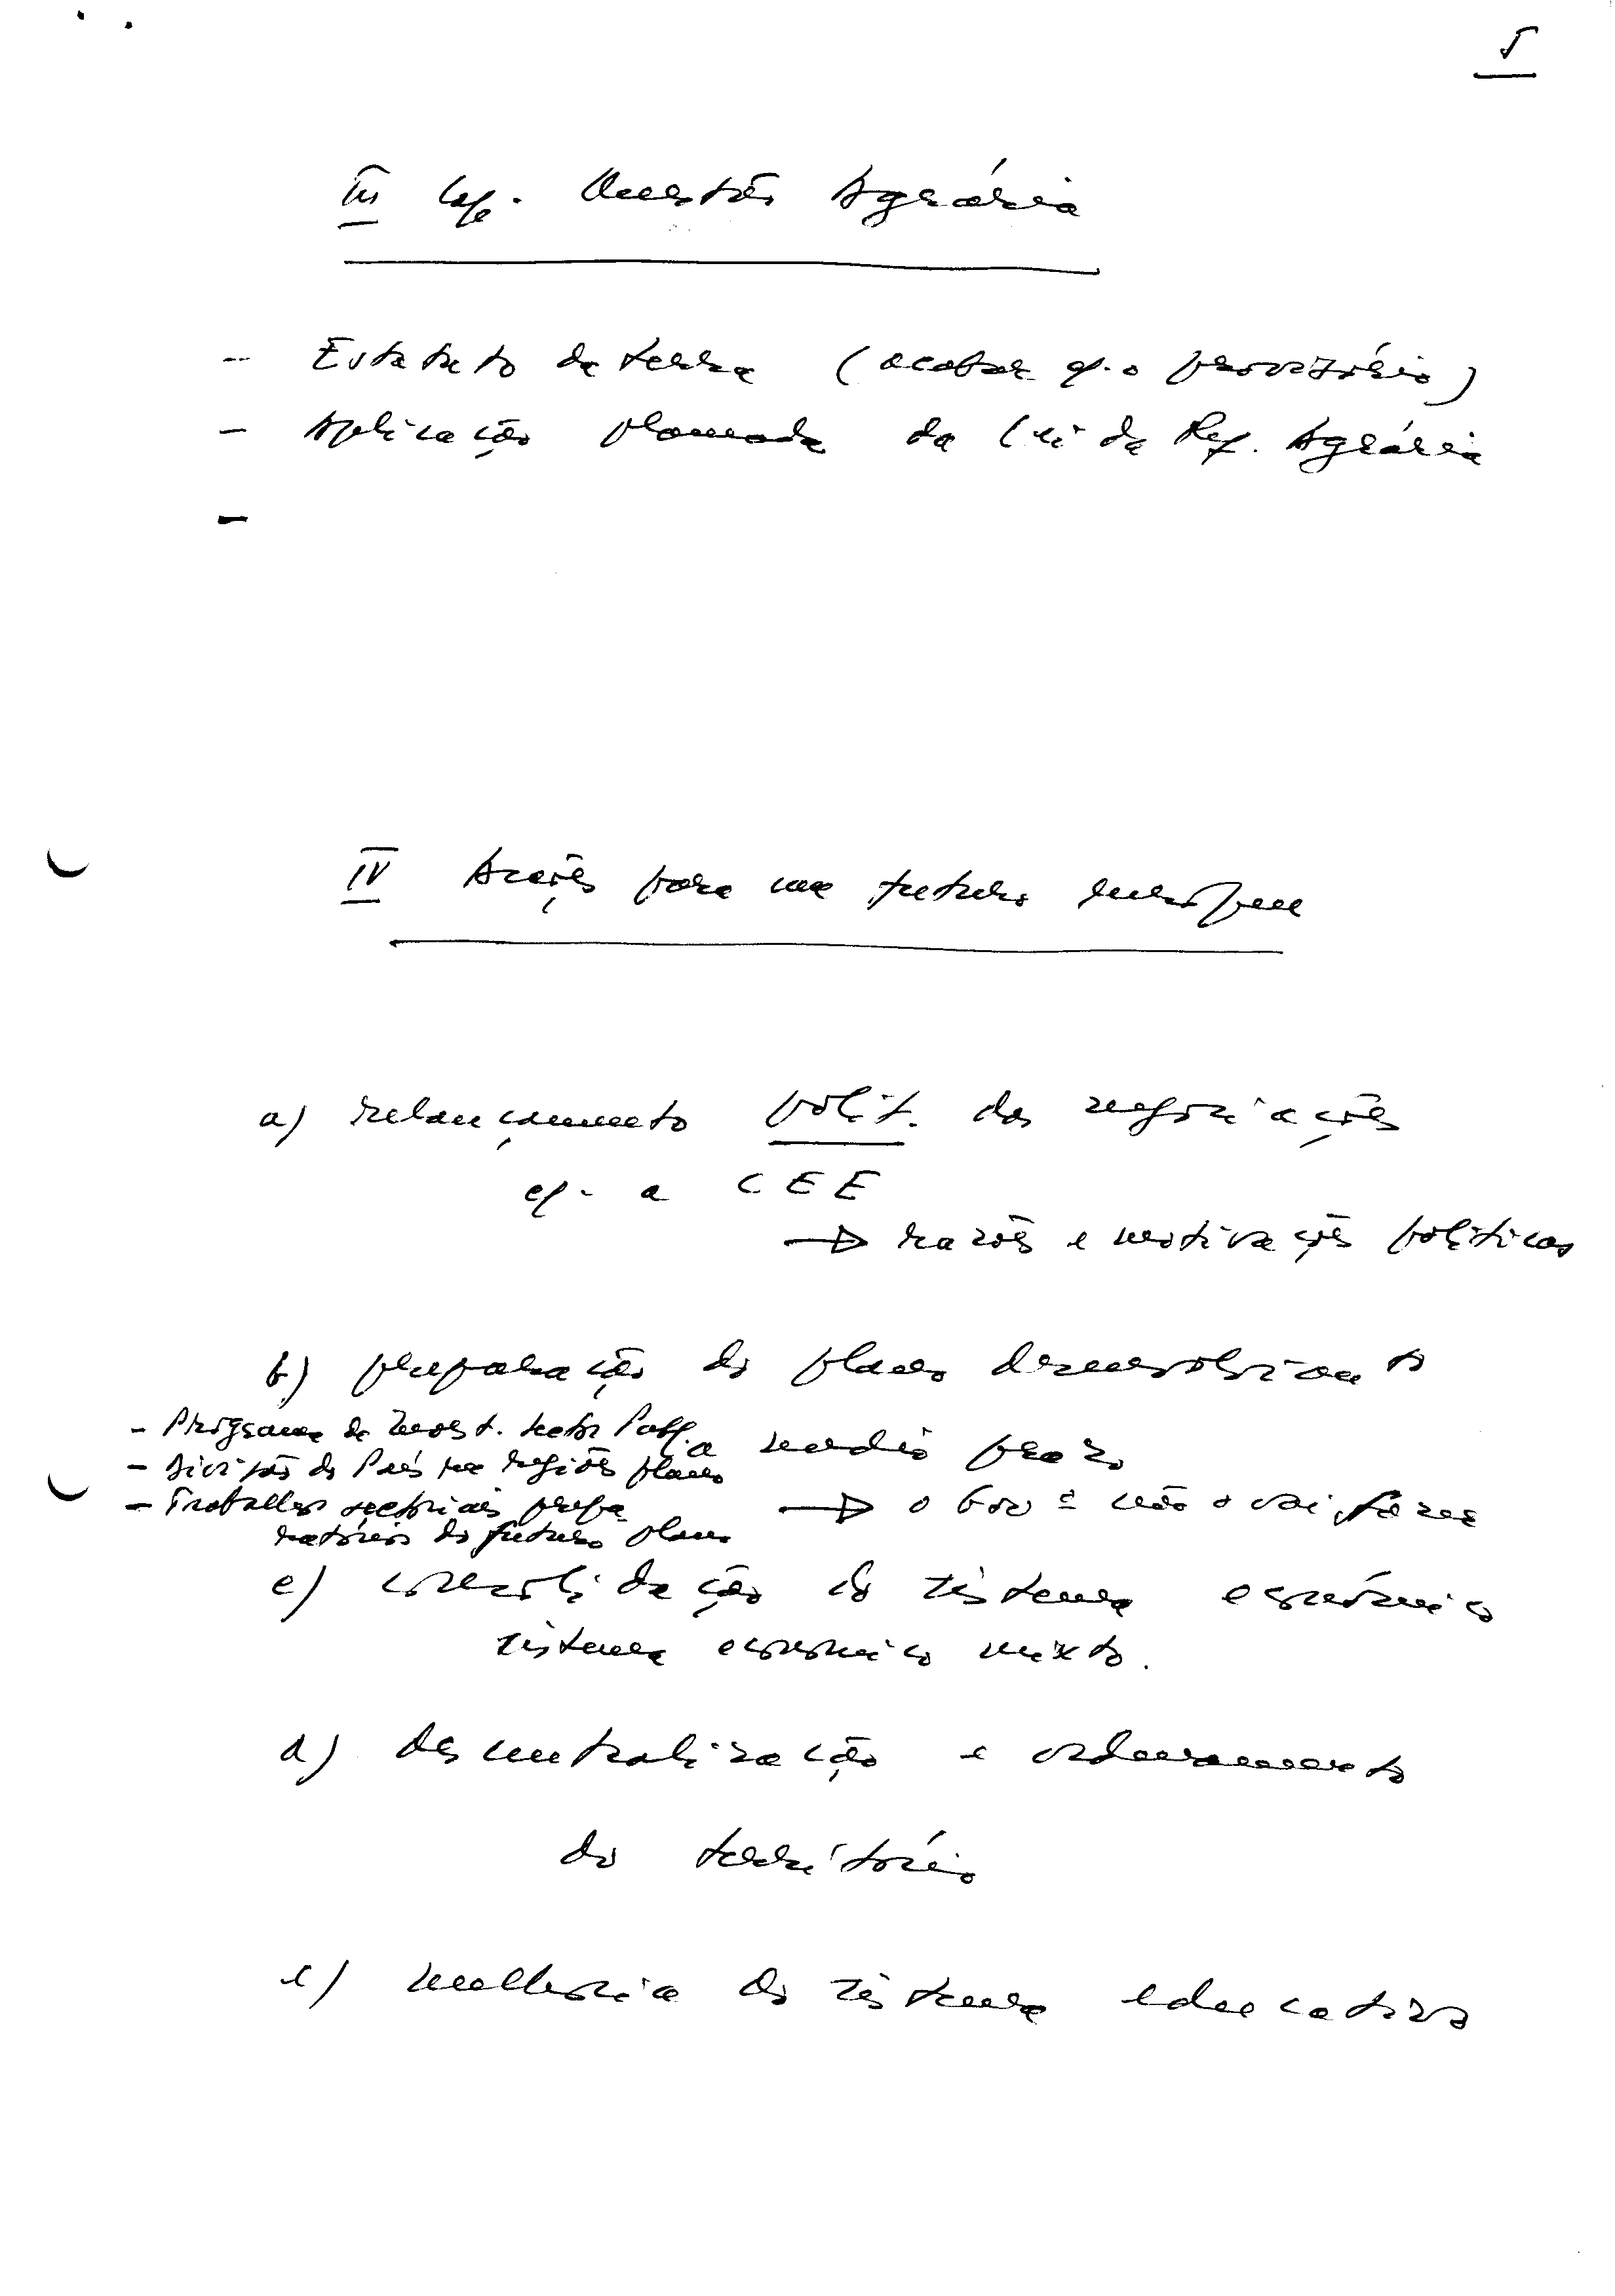 5
III Cap. Questão Agrária
- Estatuto da terra (acabar c/. o provisório)
- Aplicação planeada da Lei da Ref. Agrária
-
IV Acções para um futuro europeu
a) relançamento polít. das negociações
c/. a CEE
→ razões e motivações políticas
b) preparação do plano desenvolvimento
a médio prazo
- Programa de Invest. Sector Púb.
- Divisão do País em regiões plano
- Trabalhos sectoriais prepa
ratórios do futuro plano
→ o Govº não o vai fazer
c) consolidação do sistema económico
sistema económico mixto.
d) descentralização e ordenamento
do território
e) melhoria do sistema educativo